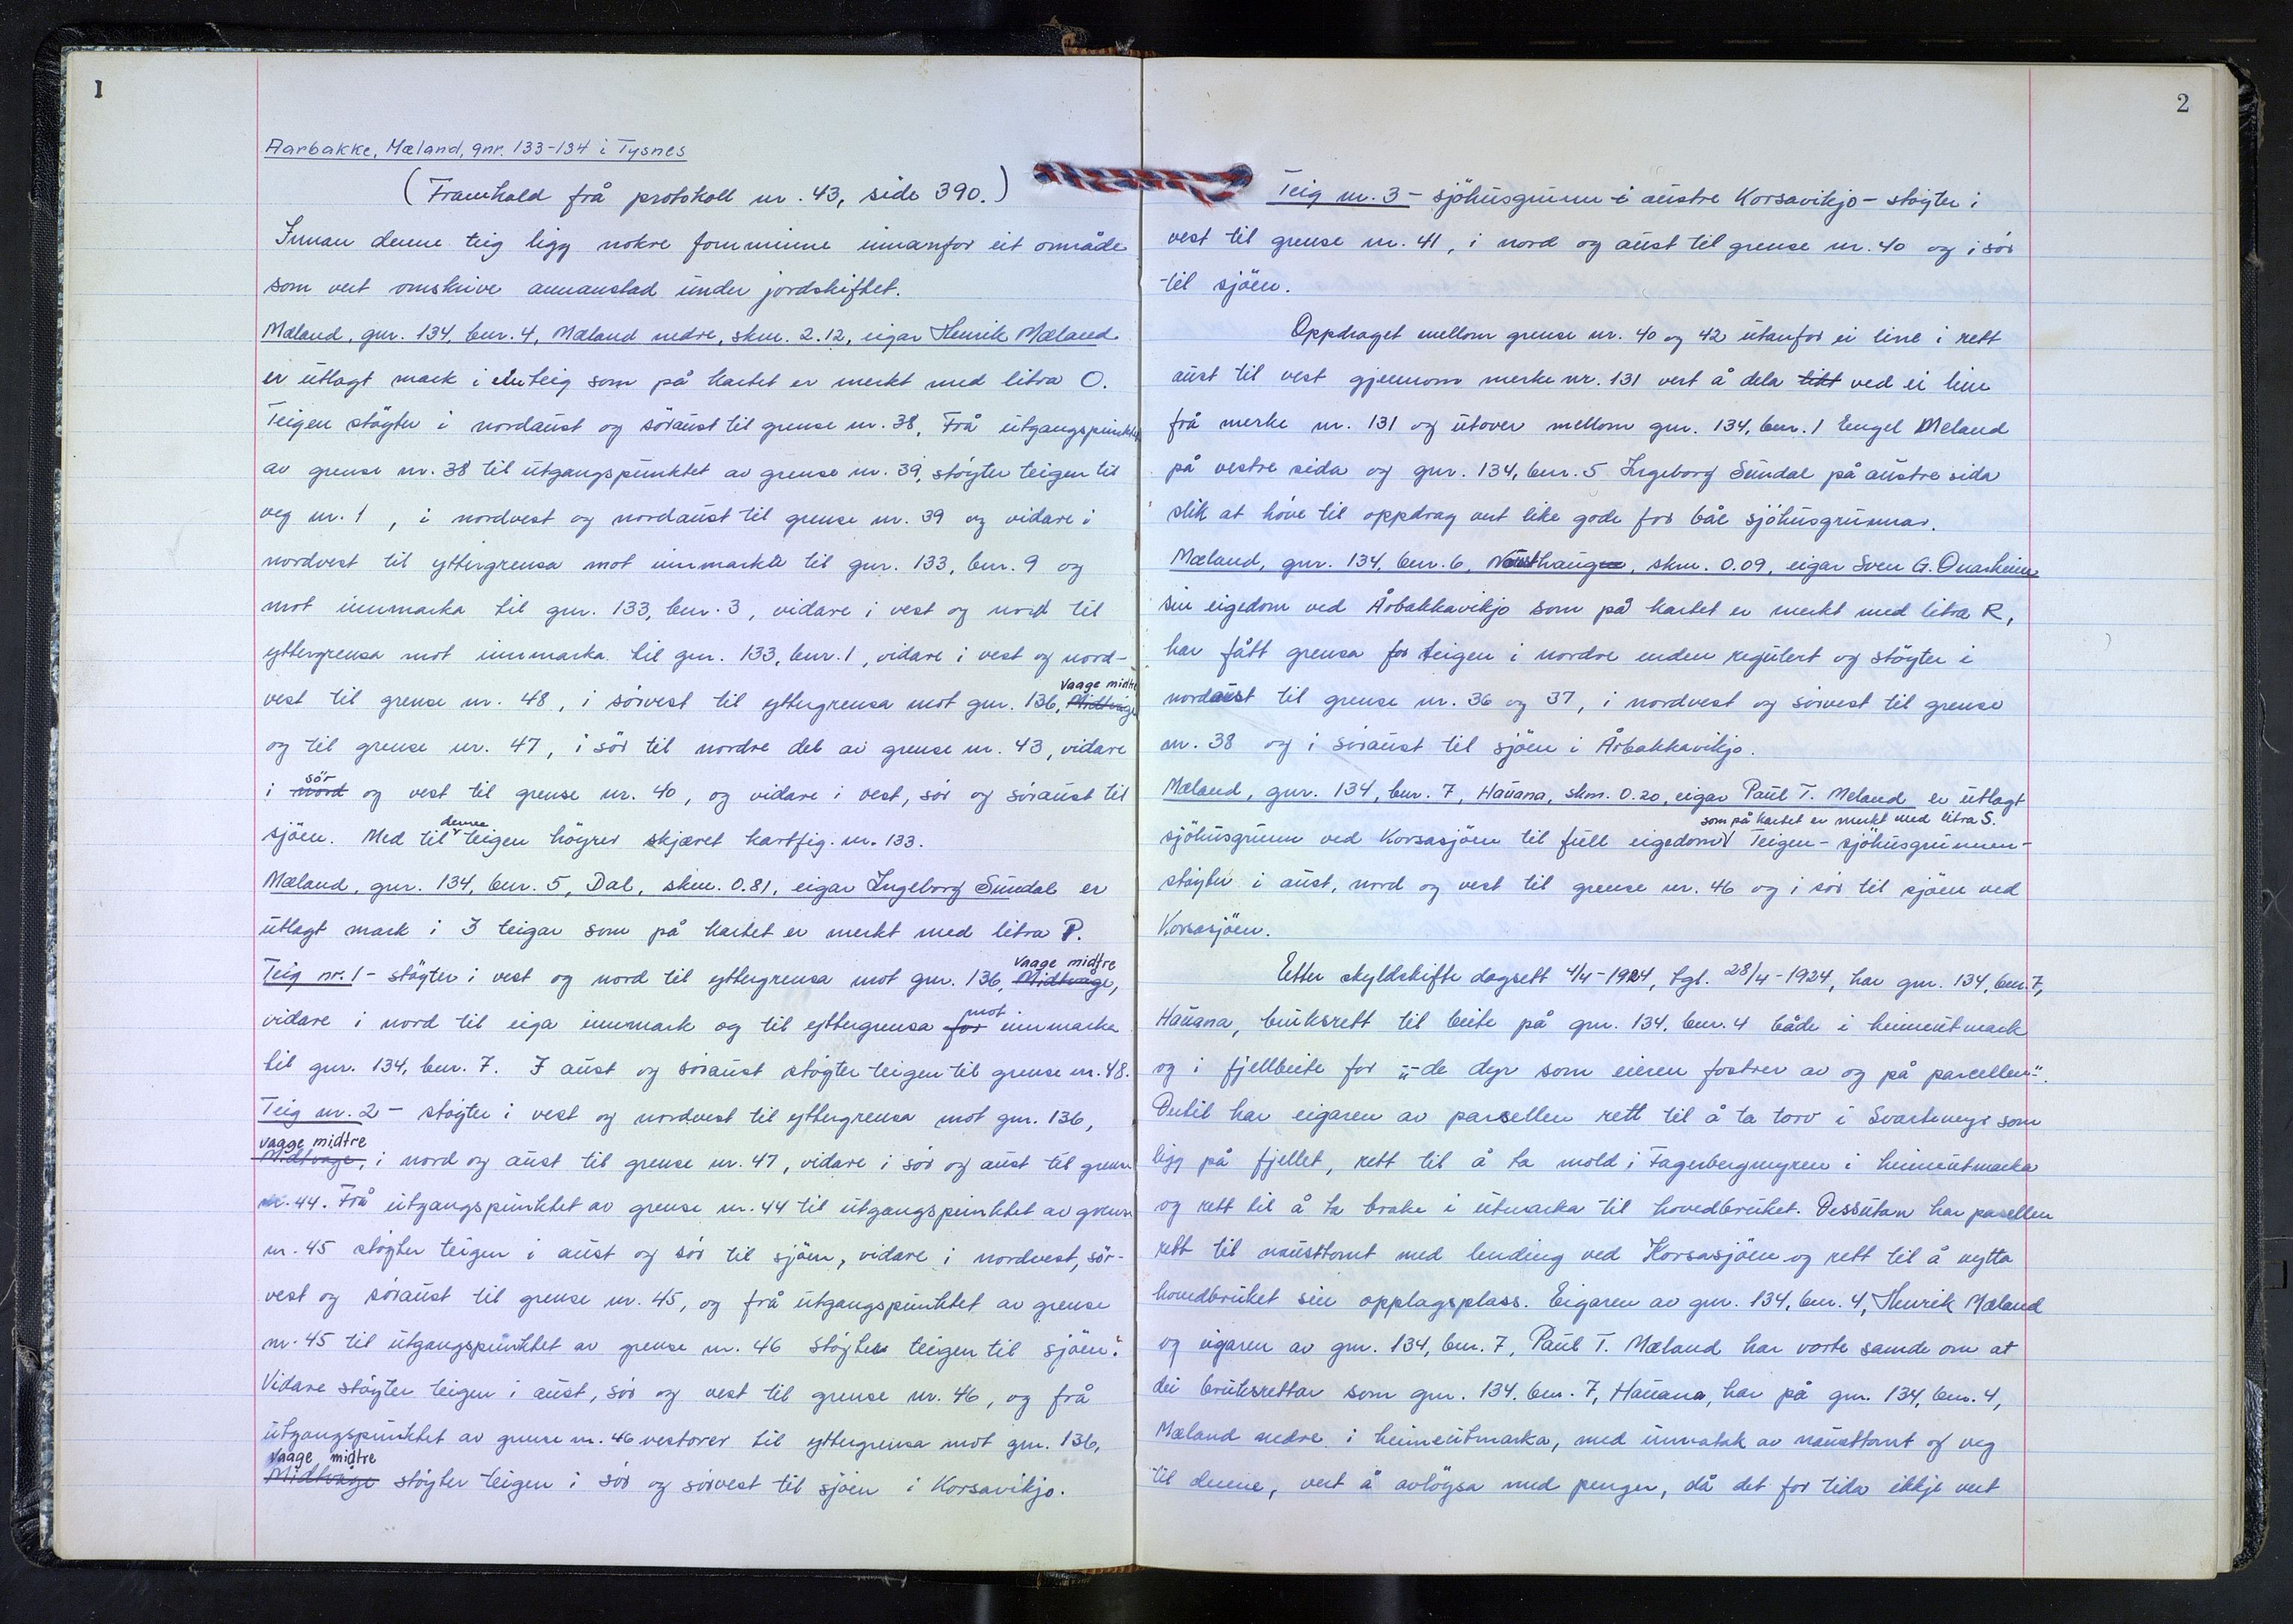 1
Aarbakke, Mæland, gnr. 133-134 i Tysnes
(Framhald frå protokoll nr. 43, side 390.)
Innan denne teig ligg nokre fornminne innanfor eit område
som vert omskrive annanstad under jordskiftet.
Mæland, gnr. 134, bnr. 4, Mæland nedre, skm. 2.12, eigar Henrik Mæland
er utlagt mark i ein teig som på kartet er merkt med litra O.
Teigen støyter i nordaust og søraust til grense nr. 38. Frå utgangspunktet
av grense nr. 38 til utgangspunktet av grense nr. 39, støyter teigen til
veg nr. 1, i nordvest og nordaust til grense nr. 39 og vidare i
nordvest til yttergrensa mot innmarka til gnr. 133, bnr. 9 og
mot innmarka til gnr. 133, bnr. 3, vidare i vest og nord til
yttergrensa mot innmarka til gnr. 133, bnr. 1, vidare i vest og nord-
Vaage midtre
vest til grense nr. 48, i sørvest til yttergrensa mot gnr. 136, Midtvåge
og til grense nr. 47, i sör til nordre del av grense nr. 43, vidare
sör
i nord og vest til grense nr. 40, og vidare i vest, sör og søraust til
denne
sjöen. Med til teigen høyrer skjæret kartfig. nr. 133.
Mæland, gnr. 134, bnr. 5, Dal, skm. 0.81, eigar Ingeborg Sundal er
utlagt mark i 3 teigar som på kartet er merkt med litra P.
Vaage midtre
Teig nr. 1 - støyter i vest og nord til yttergrensa mot gnr. 136, Midtvåge,
mot
vidare i nord til eiga innmark og til yttergrensa for innmarka
til gnr. 134, bnr. 7. I aust og søraust støyter teigen til grense nr. 48.
Teig nr. 2 - støyter i vest og nordvest til yttergrensa mot gnr. 136,
vaage midtre
Midtvage, i nord og aust til grense nr. 47, vidare i sör og aust til grense
nr. 44. Frå utgangspunktet av grense nr. 44 til utgangspunktet av grense
nr. 45 støyter teigen i aust og sör til sjöen, vidare i nordvest, sör-
vest og søraust til grense nr. 45, og frå utgangspunktet av grense
nr. 45 til utgangspunktet av grense nr. 46 støyter teigen til sjöen.
Vidare støyter teigen i aust, sör og vest til grense nr. 46, og frå
utgangspunktet av grense nr. 46 vestover til yttergrensa mot gnr. 136,
Vaage midtre
Midtvåge støyter teigen i sör og sørvest til sjöen i Korsavikjo.
2
Teig nr. 3 - sjöhusgrunn i austre Korsavikjo - støyter i
vest til grense nr. 41, i nord og aust til grense nr. 40 og i sör
til sjöen.
Oppdraget mellom grense nr. 40 og 42 utanfor ei line i rett
aust til vest gjennom merke nr. 131 vert å dela likt ved ei line
frå merke nr. 131 og utover mellom gnr. 134, bnr. 1 Engel Meland
på vestre sida og gnr. 134, bnr. 5 Ingeborg Sundal på austre sida
slik at høve til oppdrag vert like gode for båe sjöhusgrunnar.
Mæland, gnr. 134, bnr. 6, Nausthaugen, skm. 0.09, eigar Sven G. Onarheim
sin eigedom ved Årbakkavikjo som på kartet er merkt med litra R,
har fått grensa for teigen i nordre enden regulert og støyter i
nordaust til grense nr. 36 og 37, i nordvest og sørvest til grense
nr. 38 og i søraust til sjöen i Årbakkavikjo.
Mæland, gnr. 134, bnr. 7, Hauana, skm. 0.20, eigar Paul T. Meland er utlagt
som på kartet er merkt med litra S.
sjöhusgrunn ved Korsasjöen til full eigedom Teigen - sjöhusgrunnen -
støyter i aust, nord og vest til grense nr. 46 og i sör til sjöen ved
Korsasjöen.
Etter skyldskifte dagsett 4/4-1924, tgl. 28/4-1924, har gnr. 134, bnr. 7,
Hauana, bruksrett til beite på gnr. 134, bnr. 4 både i heimeutmark
og i fjellbeite for "-de dyr som eieren fostrer av og på parcellen"-.
Dertil har eigaren av parsellen rett til å ta torv i Svartemyr som
ligg på fjellet, rett til å ta mold i Fagerbergmyren i heimeutmarka
og rett til å ta brake i utmarka til hovedbruket. Dessutan har pasellen
rett til nausttomt med lending ved Korsasjöen og rett til å nytta
hovedbruket sin opplagsplass. Eigaren av gnr. 134, bnr. 4, Henrik Mæland
og eigaren av gnr. 134, bnr. 7, Paul T. Mæland har vorte samde om at
dei bruksrettar som gnr. 134, bnr. 7, Hauana, har på gnr. 134, bnr. 4,
Mæland nedre i heimeutmarka, med unnatak av nausttomt og veg
til denne, vert å avløysa med pengar, då det for tida ikkje vert